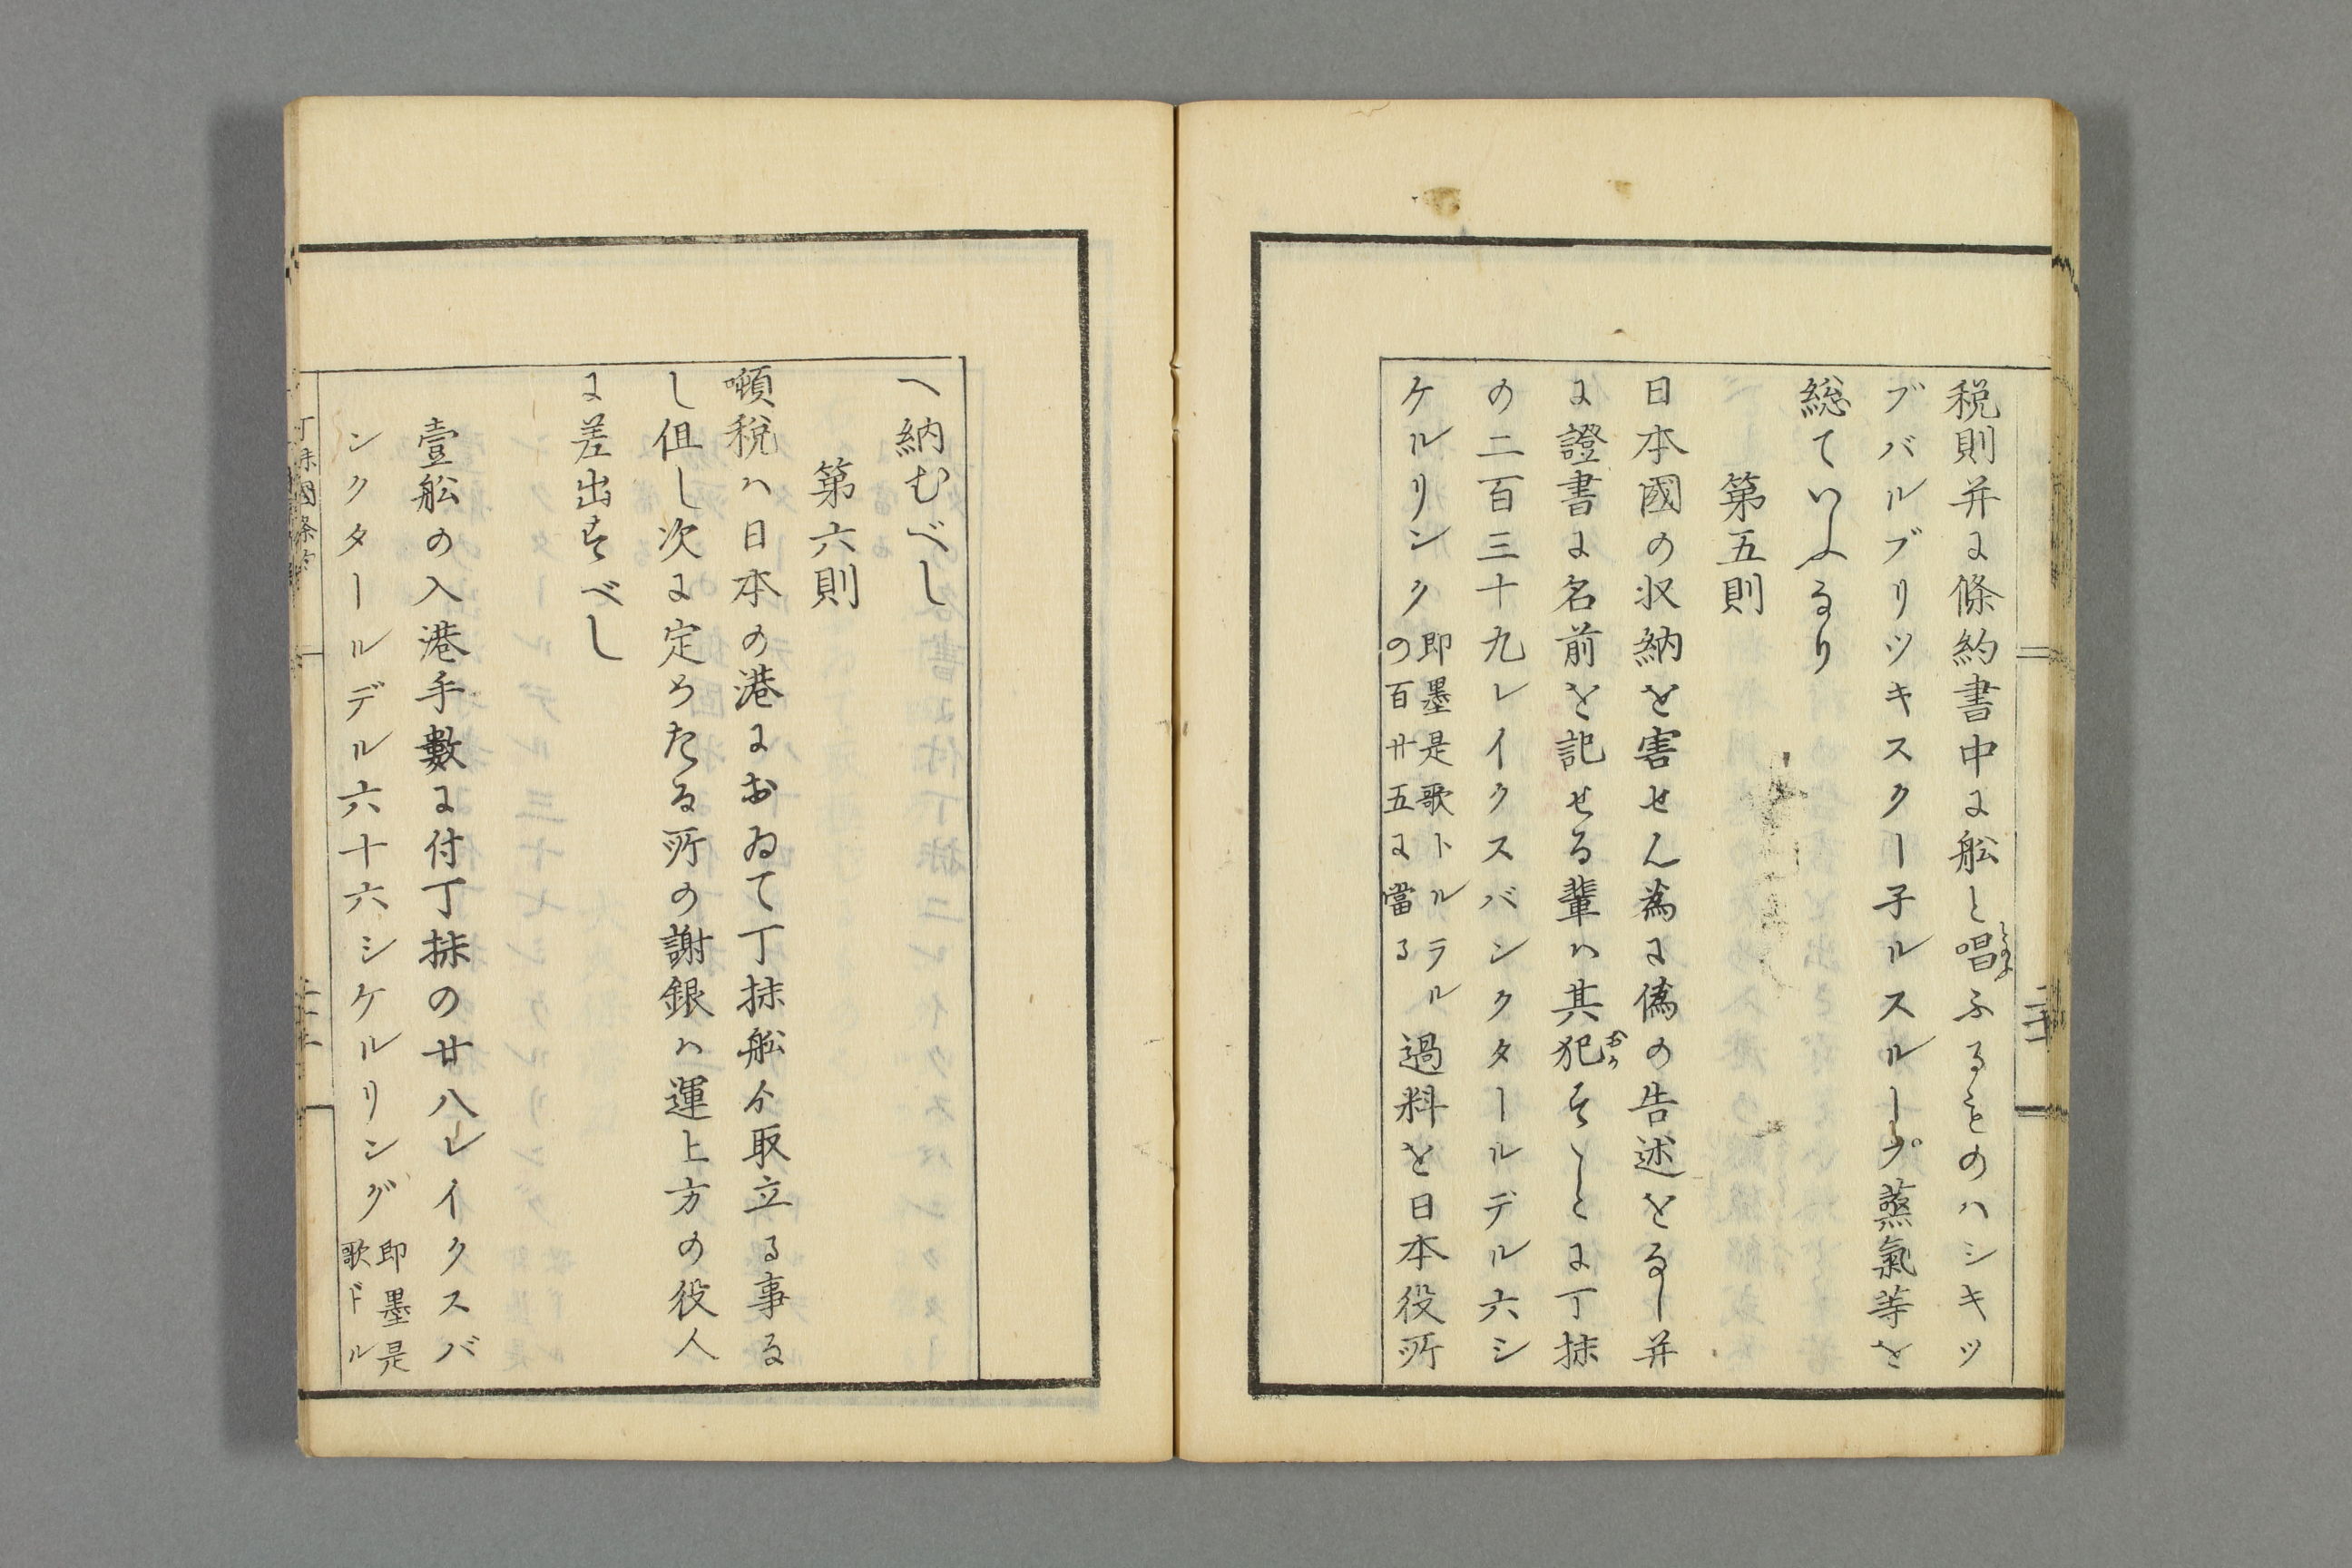 税則并に條約書中に舩と唱ふるものハシキッ
ブバルブリツキスクー子ルスループ蒸氣等を
総ていふなり
第五則
日本國の収納を害せん為に僞の告述をなし并
に證書に名前を記せる輩ハ其犯すことに丁抹
の二百三十九レイクスバンクタールデル六シ
ケルリンク即墨是歌トルラルの百廿五に當る過料を日本役所
へ納むべし
第六則
噸税ハ日本の港におゐて丁抹舩ゟ取立る事な
し但し次に定めたる所の謝銀ハ運上方の役人
に差出すべし
壹舩の入港手數に付丁抹の廿八レイクスバ
ンクタールデル六十六シケルリング即墨是歌ドル